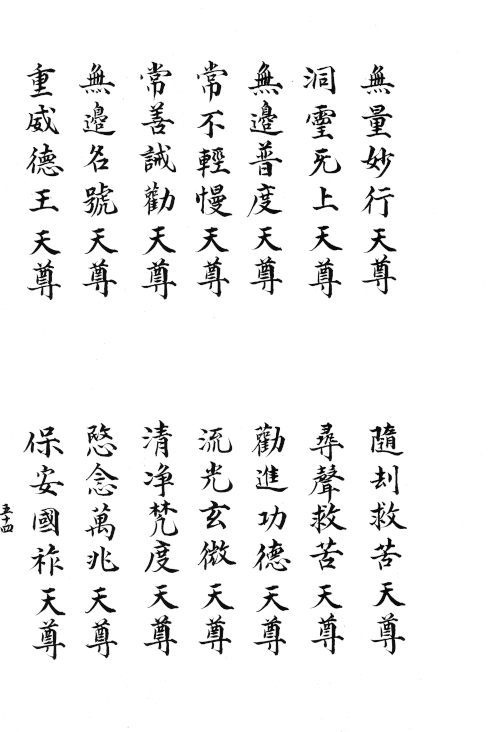 無量妙行天尊
洞霊无上天尊
無邊普度天尊
常不輕慢天尊
常善誡勸天尊
無邊名號天尊
重威德王天尊
隨刦救苦天尊
尋聲救苦天尊
勸進功德天尊
流光玄微天尊
清净梵度天尊
愍念萬兆天尊
保安國祚天尊
五十四